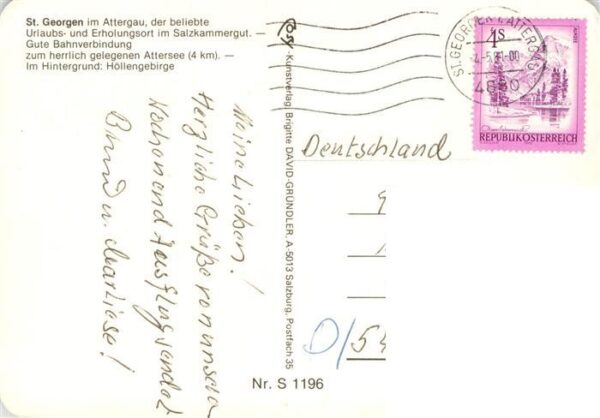 St. Georgen im Attergau, der beliebte
Urlaubs- und Erholungsort im Salzkammergut. —
Gute Bahnverbindung
zum herrlich gelegenen Attersee (4 km). —
Im Hintergrund: Höllengebirge
Cosy-Kunstverlag Brigitte DAVID-GRÜNDLER, A-5013 Salzburg, Postfach 35
ST. GEORGEN I. ATTERGAU
4880
1S
REPUBLIK ÖSTERREICH
Meine Lieben!
Herzliche Grüße von unserm
Wochenend Ausflug senden
Bernd u. Marliese!
Deutschland
D/54
Nr. S 1196